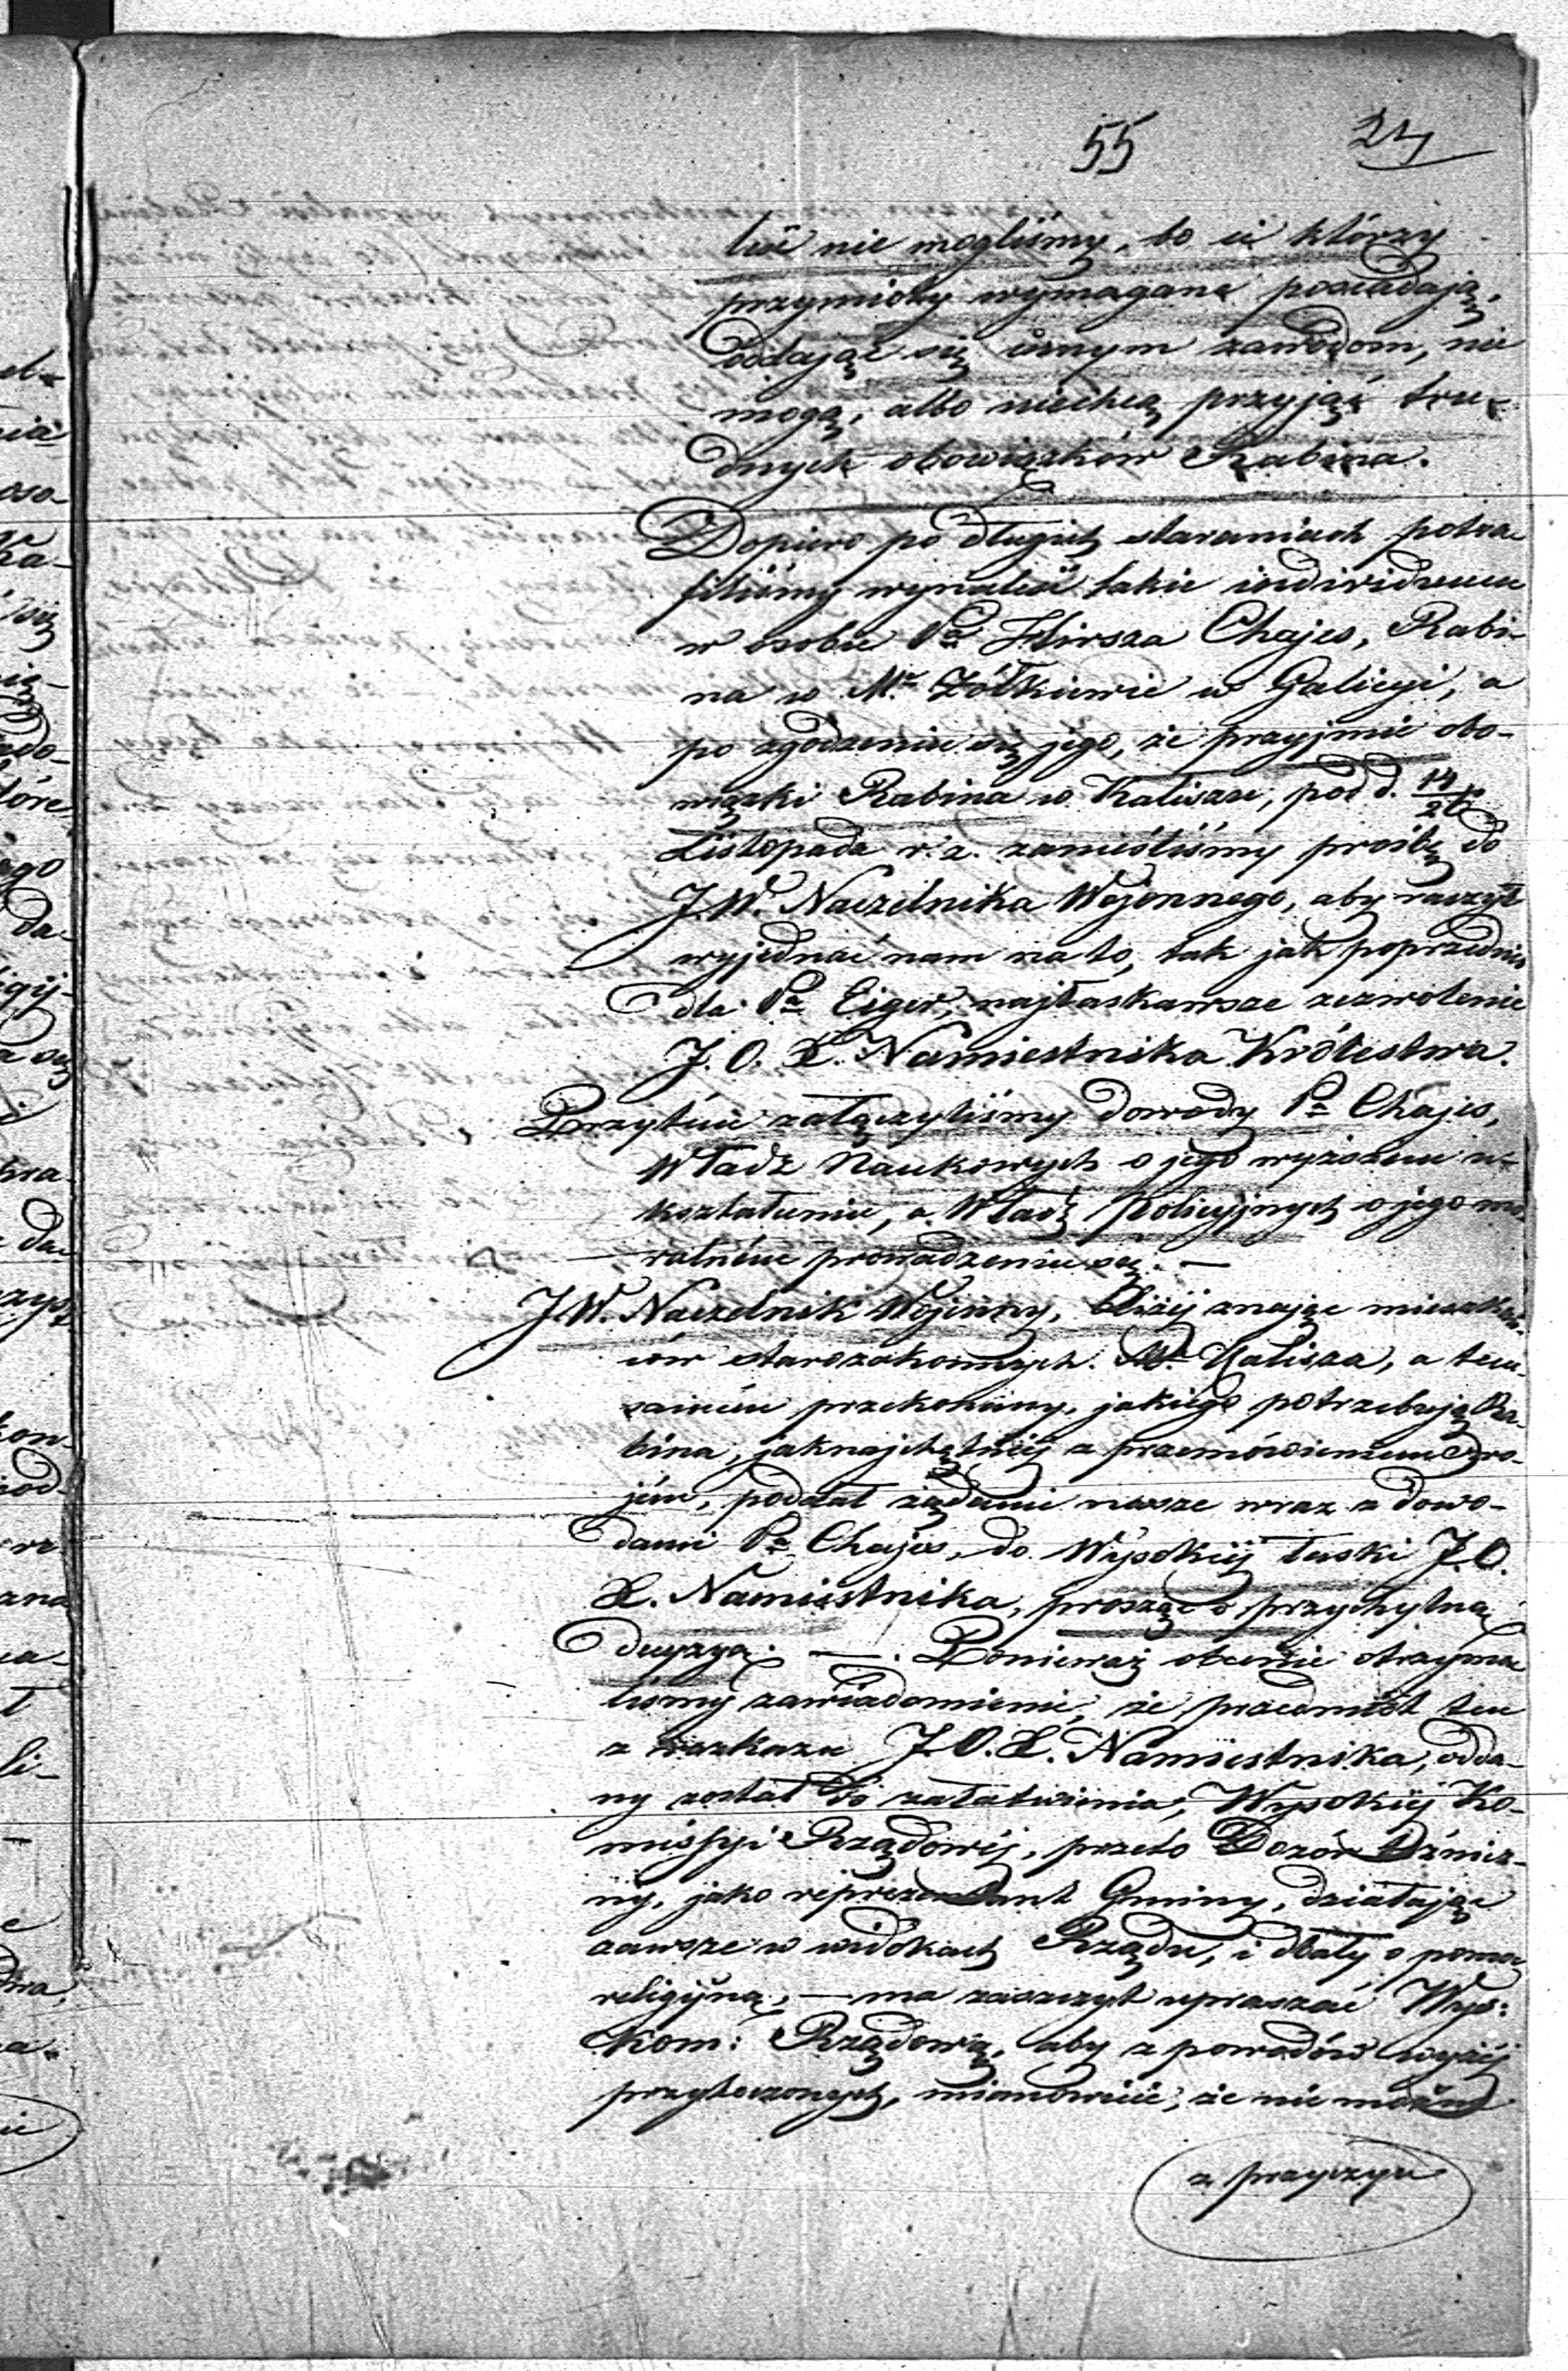 55 24
leźć nie mogliśmy, bo ci którzy
przymioty wymagane posiadają,
oddając się innym zawodom, nie
mogą, albo niechcą przyjąć tru-
dnych obowiązków Rabina.
Dopiero po długich staraniach potra-
filiśmy wynaleźć takie individuum
w osobie Pa Hirsza Chajes, Rabi-
na w Mie Żółkiewie w Galicyi, a
po zgodzeniu się jego, że przyjmie obo-
wiązki Rabina w Kaliszu, pod d. 14/26
Listopada r. z. zanieśliśmy prośbę do
J.W. Naczelnika Wojennego, aby raczył
wyjednać nam na to, tak jak poprzednio
dla Pa Eiger, najłaskawsze zezwolenie
J. O. X. Namiestnika Królestwa.
Przytém załączyliśmy dowody Pa Chajes,
Władz Naukowych o jego wyższem u-
kształceniu, a Władz Policyjnych o jego mo-
ralném prowadzeniu się. —
J.W. Naczelnik Wojenny, bliżéj znając mieszkań-
ców starozakonnych Ma Kalisza, a tem
samém przekonany, jakiego potrzebują Ra-
bina, jaknajchętniéj z przemówieniem Swo-
jém, poddał żądanie nasze wraz z dowo-
dami Pa Chajes, do Wysokiéj łaski J.O.
X. Namiestnika, prosząc o przychylną
decyzyą. — . Ponieważ obecnie otrzyma-
liśmy zawiadomienie, że przedmiot ten
z rozkazu J.O.X. Namiestnika, odda-
ny został do załatwienia, Wysokiéj Ko-
missyi Rządowéj, przeto Dozór Bóżnicz-
ny, jako reprezentant Gminy, działając
zawsze w widokach Rządu, i dbały o pomoc
religijną, — ma zaszczyt upraszać Wys:
Kom: Rządową, aby z powodów wyżéj
przytoczonych, mianowicie, że nie można
z przyczyn